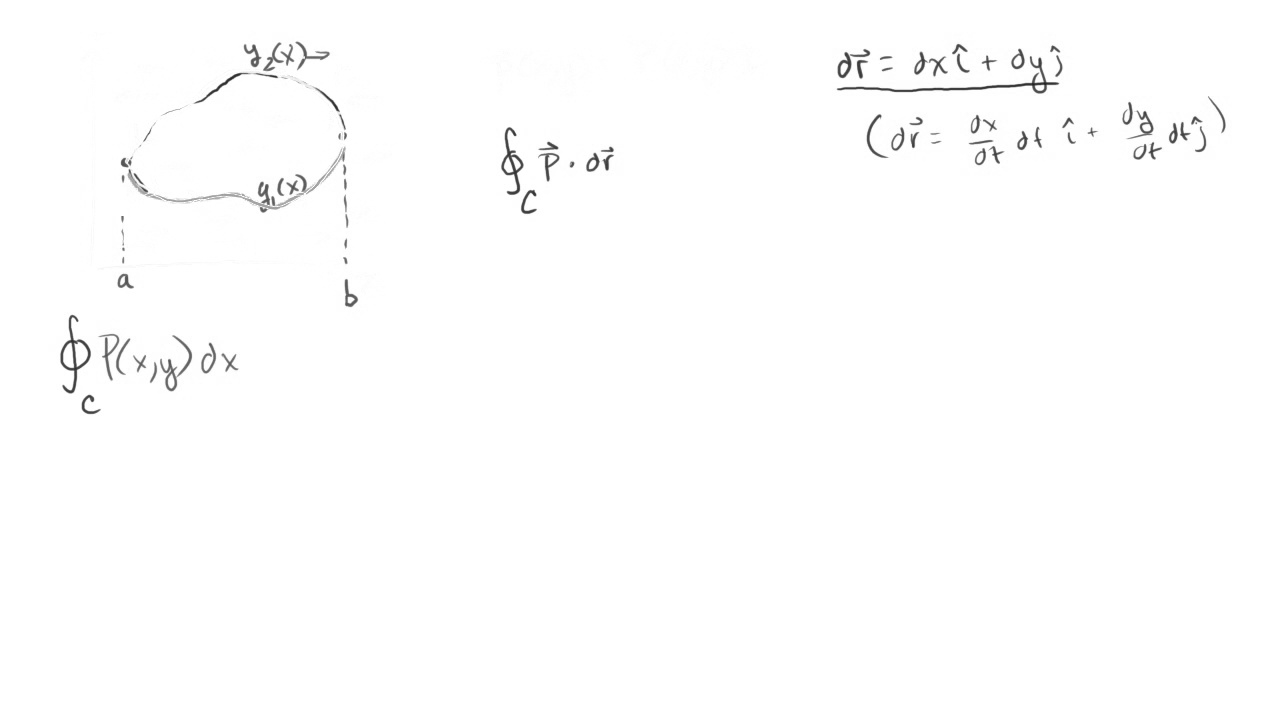 y₂(x)→
y₁(x)
a
b
∮_C P(x,y) dx
∮_C P⃗ · dr⃗
dr⃗ = dx î + dy ĵ
(dr⃗ = dx/dt dt î + dy/dt dt ĵ)